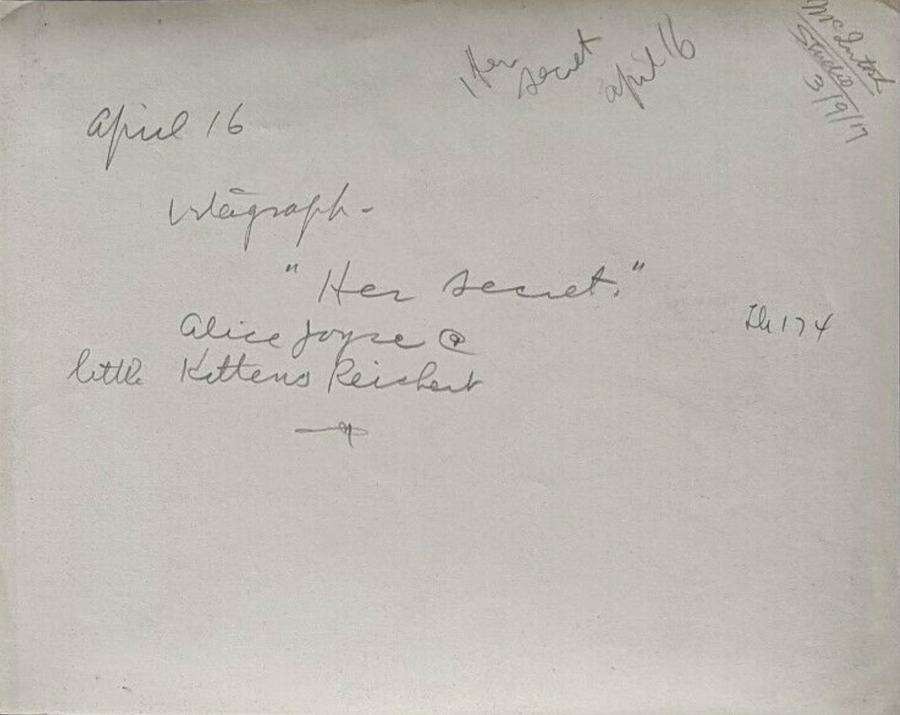 Her
secret
april 16
McIntosh
Studio
3/9/17
April 16
Vitagraph -
"Her secret."
Alice Joyce @
little Kittens Reichert
174